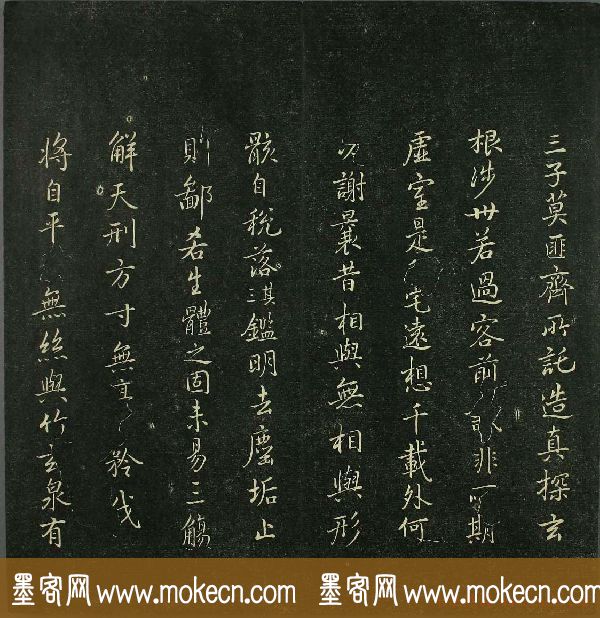 三子莫匪齊所託造真探玄
根涉世若過客前 非所期
虛室是 宅遠想千載外何
必謝曩昔相與無相與形
骸自脫落 三 其鑑明去塵垢止
則鄙吝生體之固未易三觴
解天刑方寸無主 矜伐
將自平 無絲與竹玄泉有
墨客网 www.mokecn.com 墨客网 www.mokecn.com